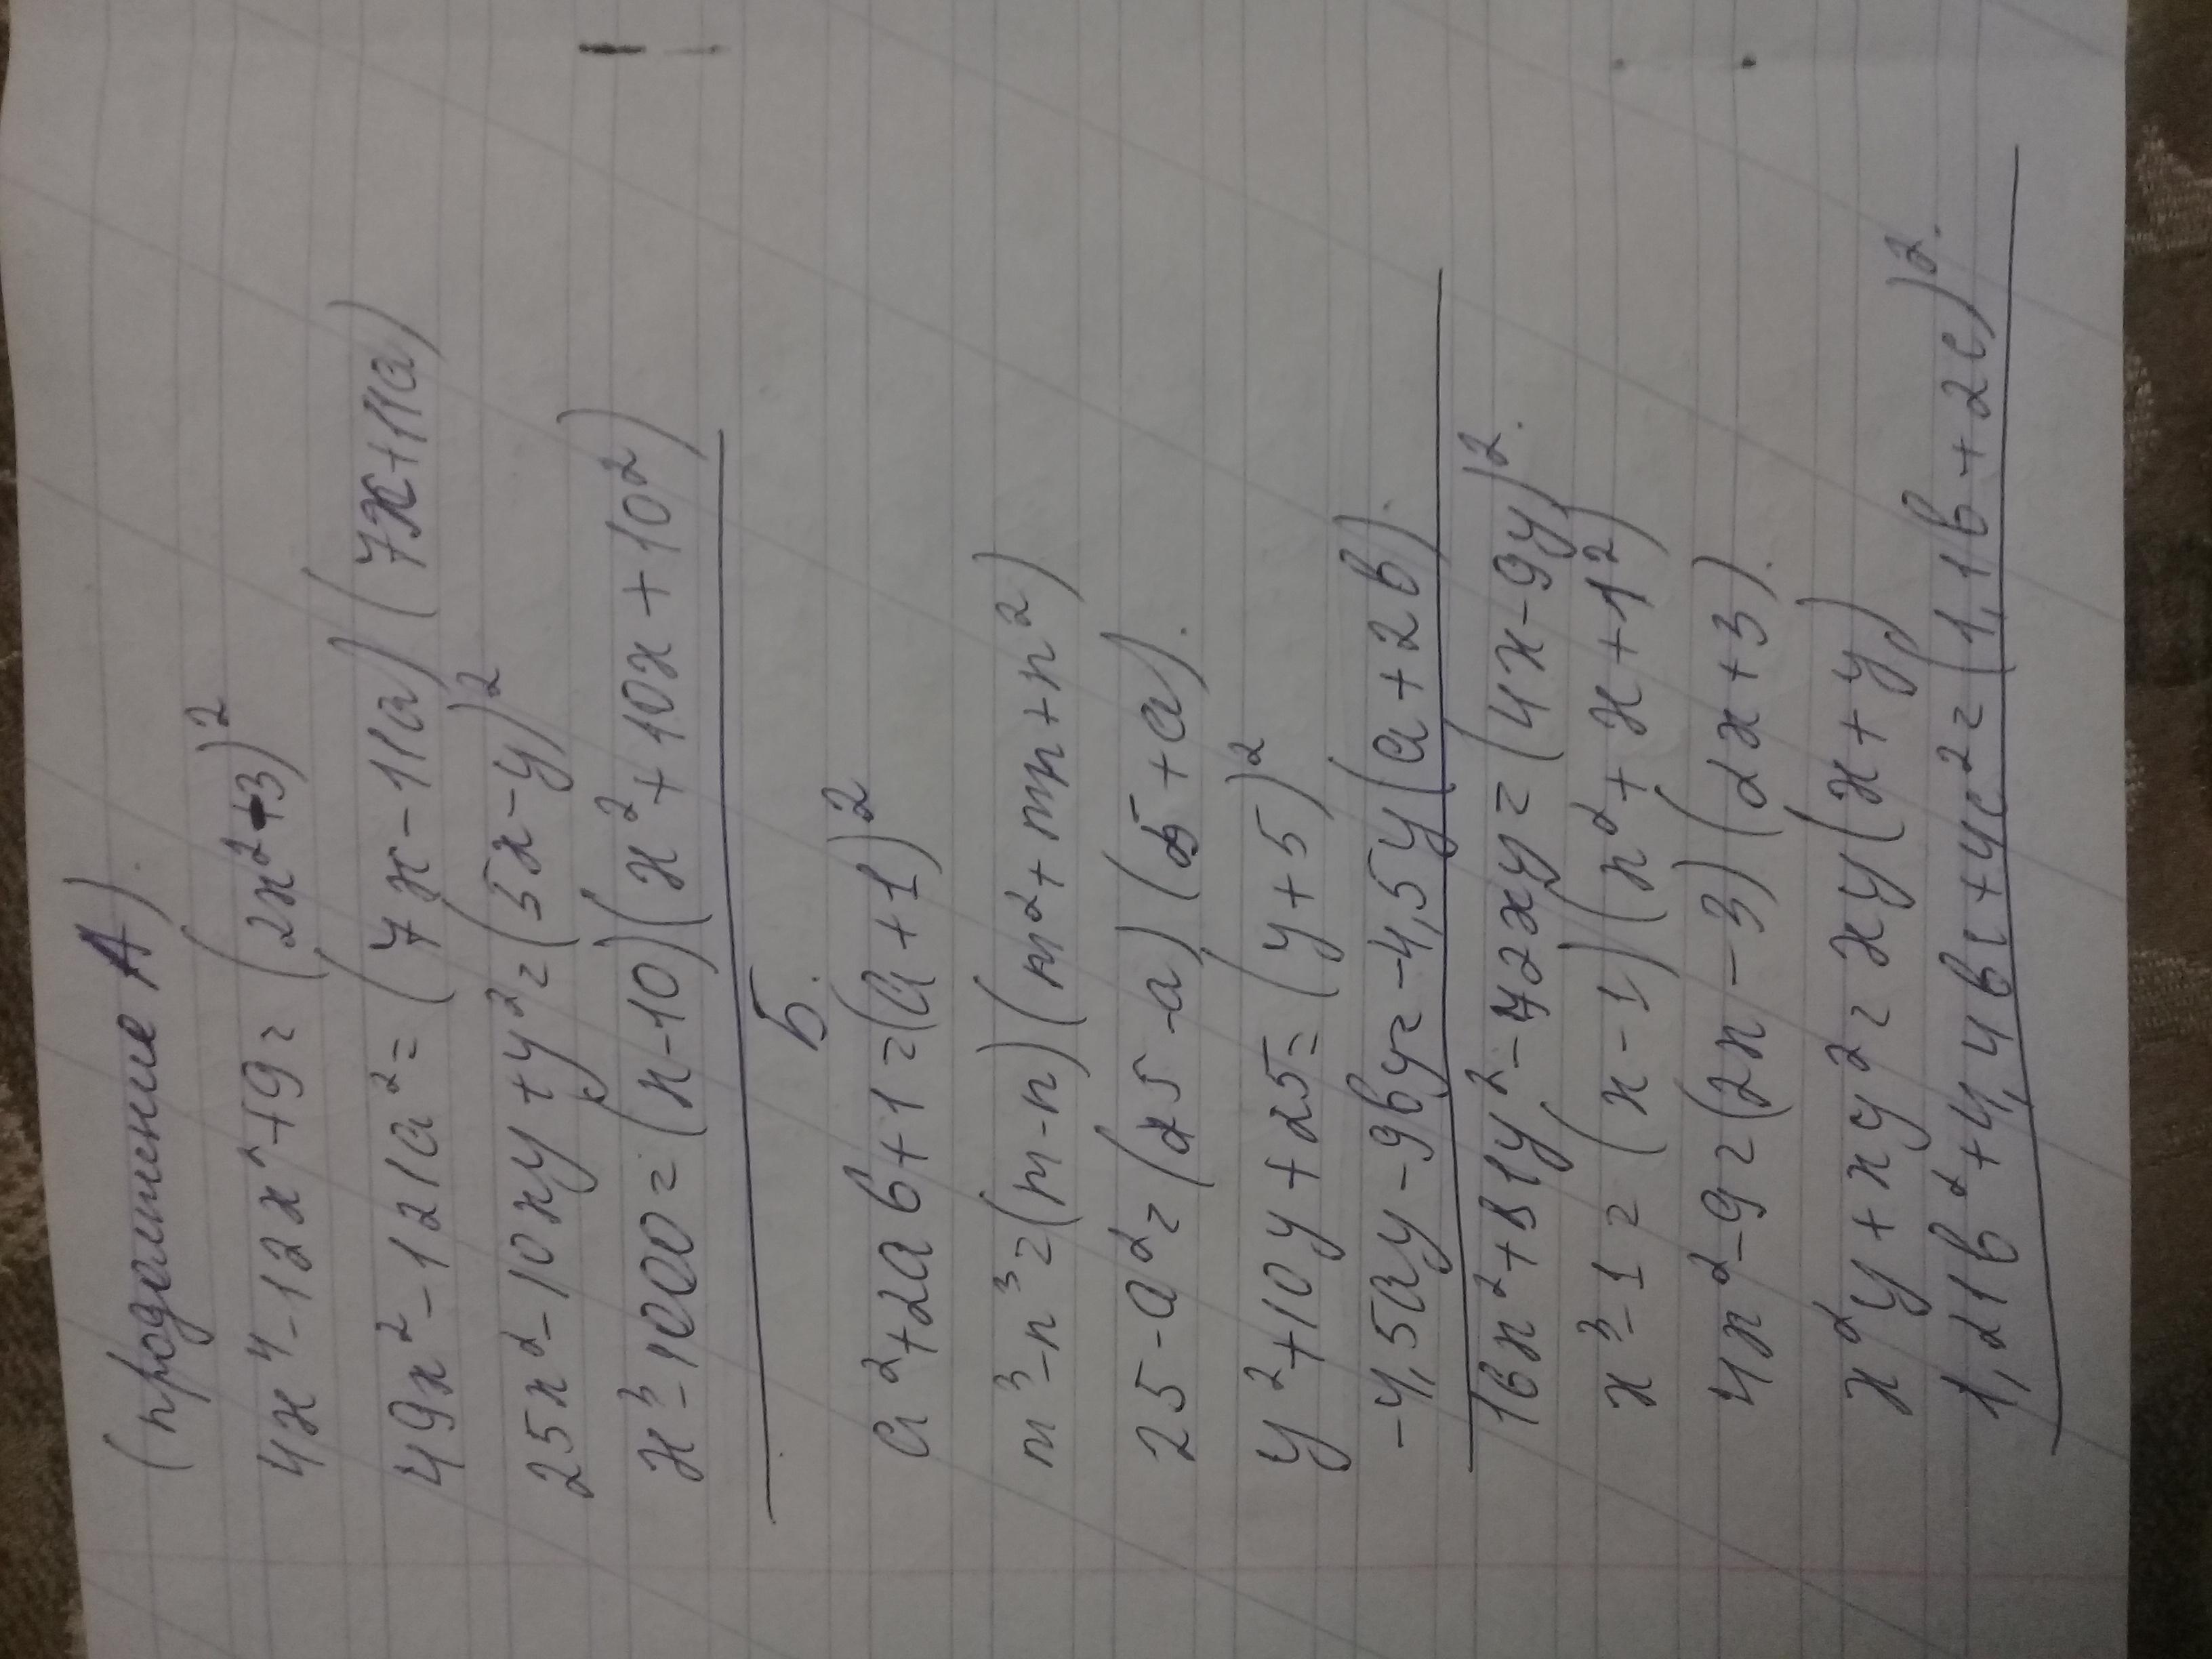 (продолжение А).
4x⁴-12x²+9=(2x²+3)²
49x²-121a²=(7x-11a)(7x+11a)
25x²-10xy+y²=(5x-y)²
x³-1000=(x-10)(x²+10x+10²)
Б.
a²+2ab+1=(a+1)²
m³-n³=(m-n)(m²+mn+n²)
25-a²=(25-a)(5+a).
y²+10y+25=(y+5)²
-4,5ay-9by=-4,5y(a+2b).
16x²+81y²-72xy=(4x-9y)².
x³-1=(x-1)(x²+x+1²)
4x²-9=(2x-3)(2x+3).
x²y+xy²=xy(x+y)
1,21b²+4,4bc+4c²=(1,1b+2c)².